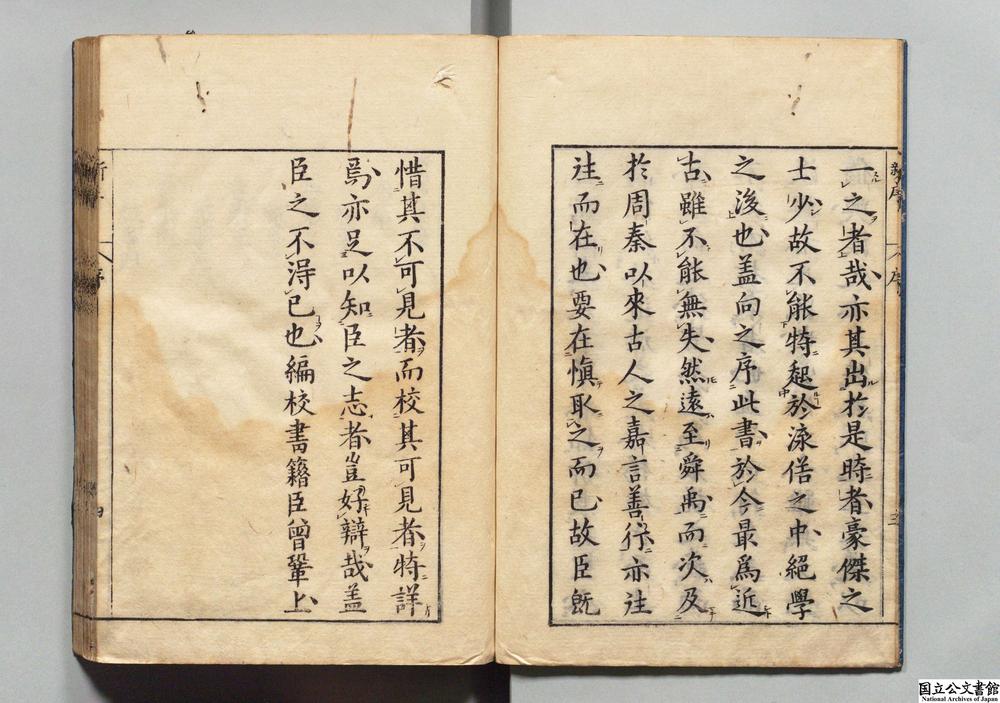 一之者哉亦其出於是時者豪傑之
士少故不能特起於流俗之中絕學
之後也蓋向之序此書於今最為近
古雖不能無失然遠至舜禹而次及
於周秦以來古人之嘉言善行亦往
往而在也要在慎取之而已故臣既
惜其不可見者而校其可見者特詳
焉亦足以知臣之志者豈好辯哉蓋
臣之不得已也編校書籍臣曾鞏上
国立公文書館
National Archives of Japan